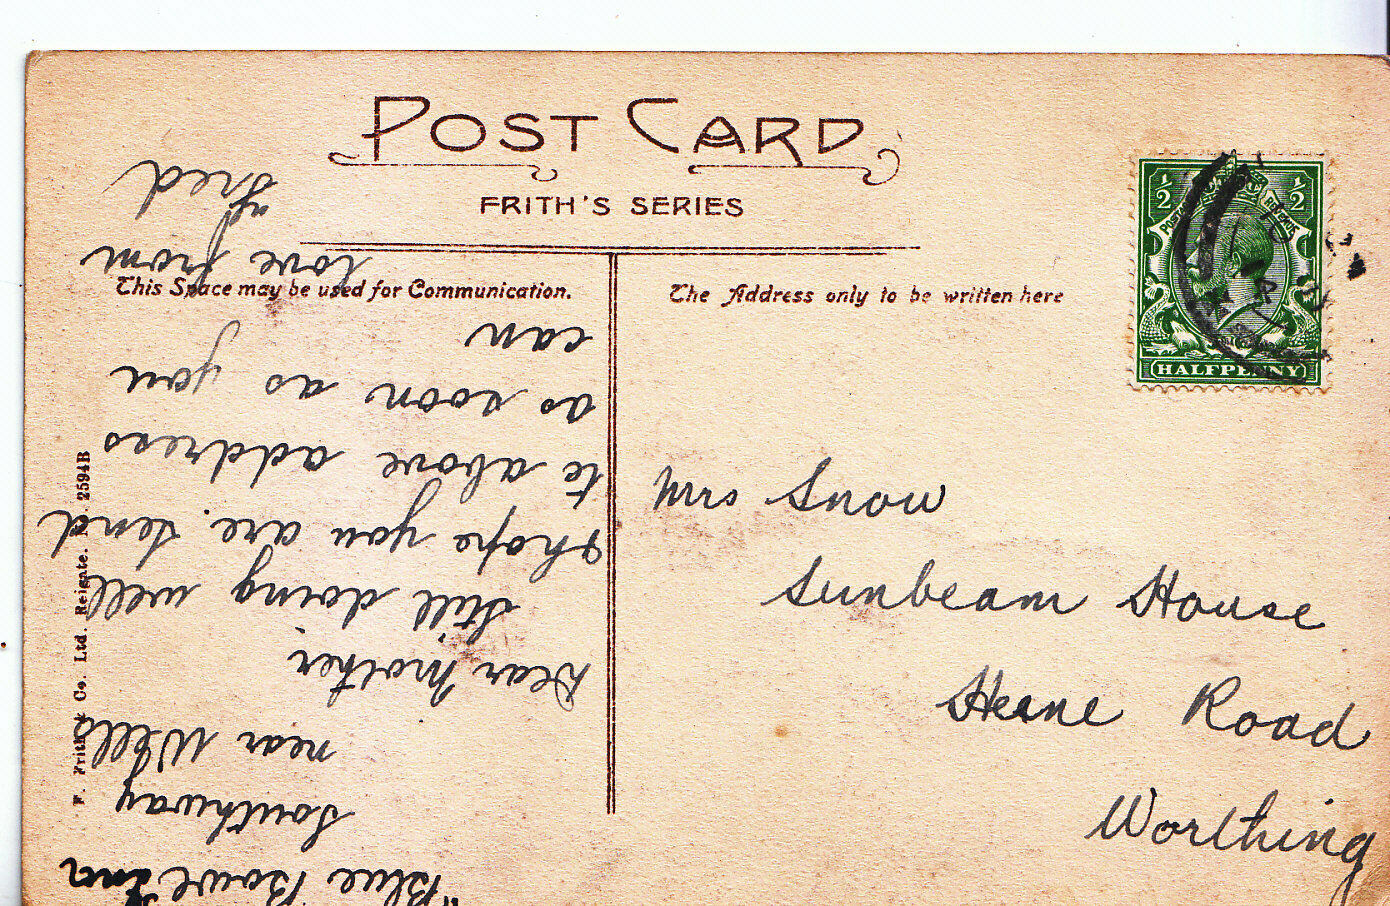 POST CARD
FRITH'S SERIES
This Space may be used for Communication.
The Address only to be written here
½ ½
POSTAGE
HALFPENNY
Mrs Snow
Sunbeam House
Heene Road
Worthing
"Blue Bowl Inn
Southway
near Wells
Dear Mother
still doing well
I hope you are. Send
to above address
as soon as you
can
love from
Fred
F. Frith & Co. Ltd. Reigate. No. 2594B